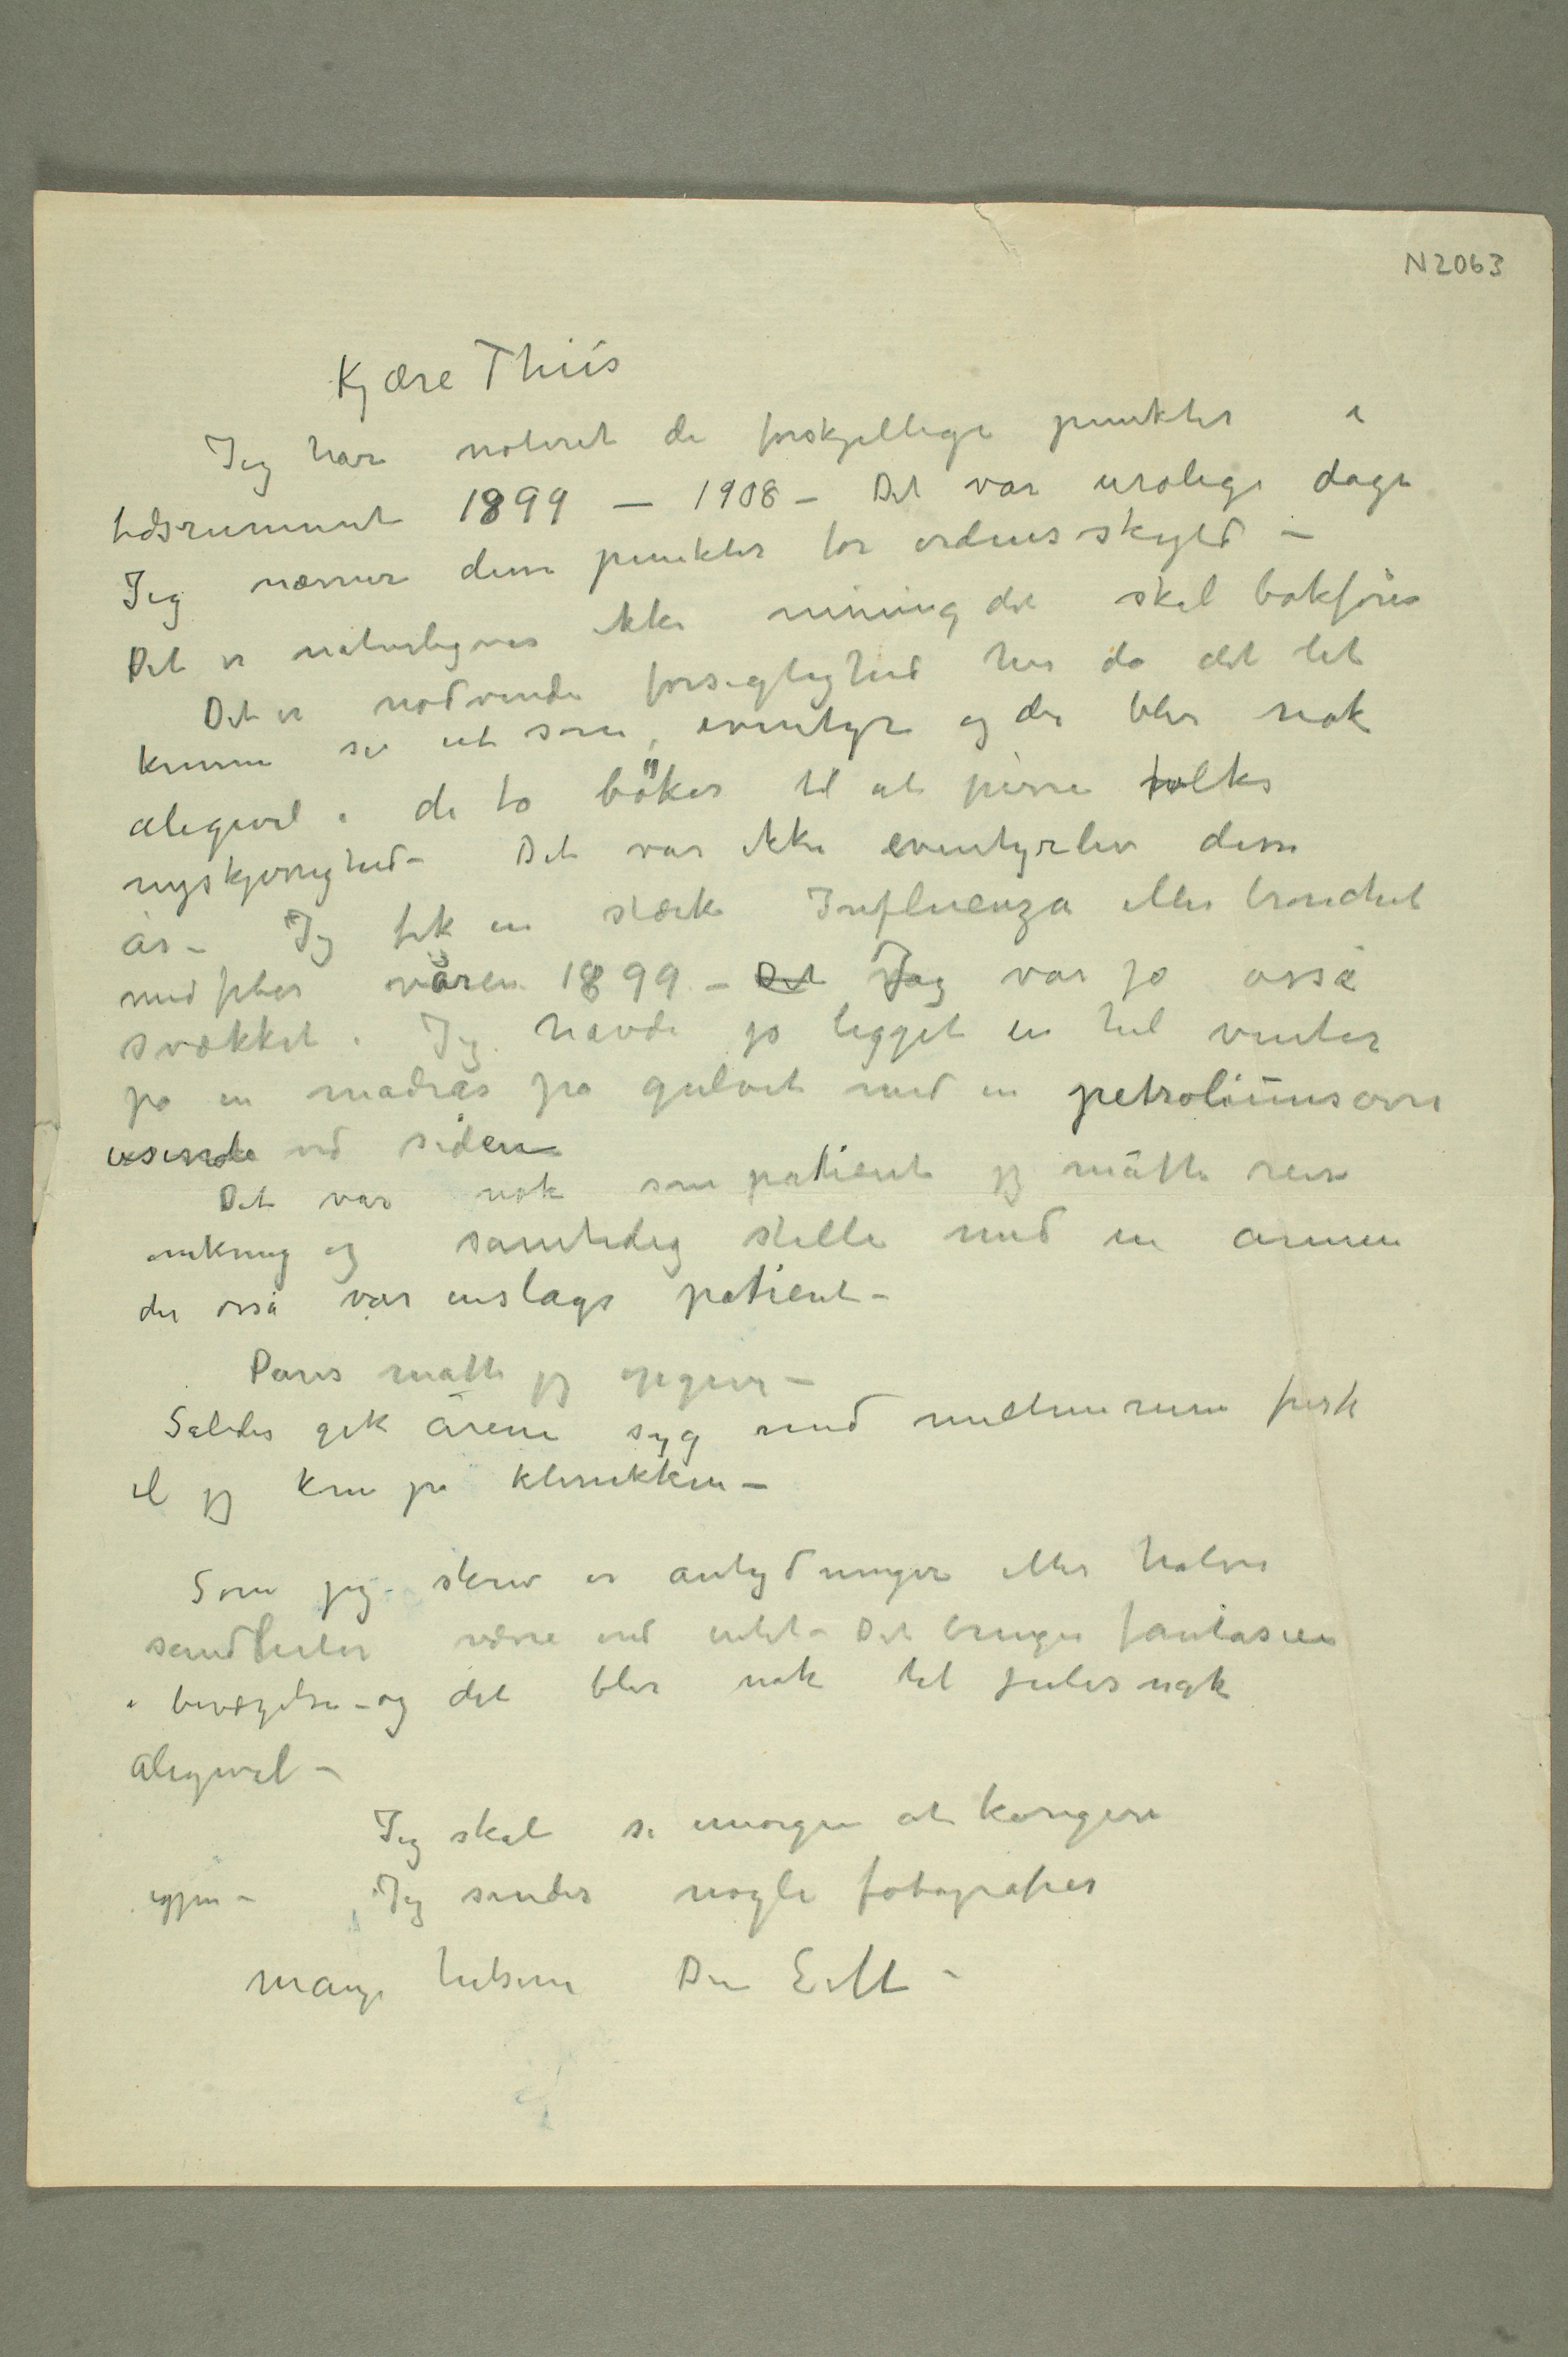 N2063
Kjære Thiis
Jeg har noteret de forskjellige punkter i
tidsrummet 1899 – 1908 – Det var urolige dage
Jeg nævner disse punkter for ordens skyld –
Det er naturligvis ikke mening det skal bokføres
Det er nødvendi forsigtighed her da det let
kunne se ut som eventyr og der blir nok
aligevel i de to bøker til at pirre folks
nyskjerrighed – Det var ikke eventyrliv disse
år – Jeg fik en stærk Influenza eller bronchit
med feber våren 1899 – Det Jeg var jo osså
svækket. Jeg havde jo ligget en hel vinter
på en madras på gulvet med en petroliumsovn
osende ved siden
Det var nok som patient jeg måtte reise
omkring og samtidig stelle med en annen
der osså var enslags patient –
Paris måtte jeg opgive –
Således gik årene syg med mellemrum frisk
til jeg kom på klinikken –
Som jeg skrev er antydninger eller halve
sandheder værre end intet – Det bringer fantasien
i bevægelse – og det blir nok til julesnak
aligevel –
Jeg skal se imorgen at korrigere
igjen – Jeg sender nogle fotografier
mange hilsener Din E M –